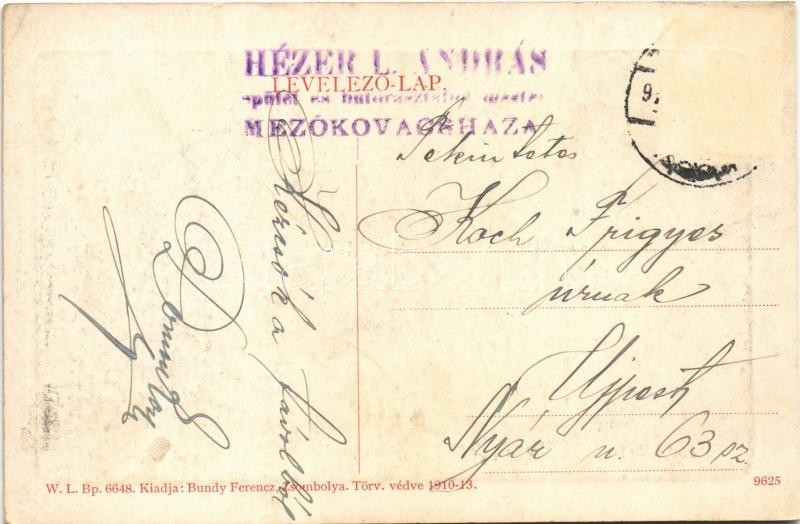 HÉZER L. ANDRÁS
LEVELEZŐ-LAP.
épület és butorasztalos mester
MEZŐKOVACSHAZA
Tekintetes
Koch Frigyes
úrnak
Ujpest
Nyár u. 63 sz.
a távolból
W. L. Bp. 6648. Kiadja: Bundy Ferencz, Zsombolya. Törv. védve 1910-13.
9625